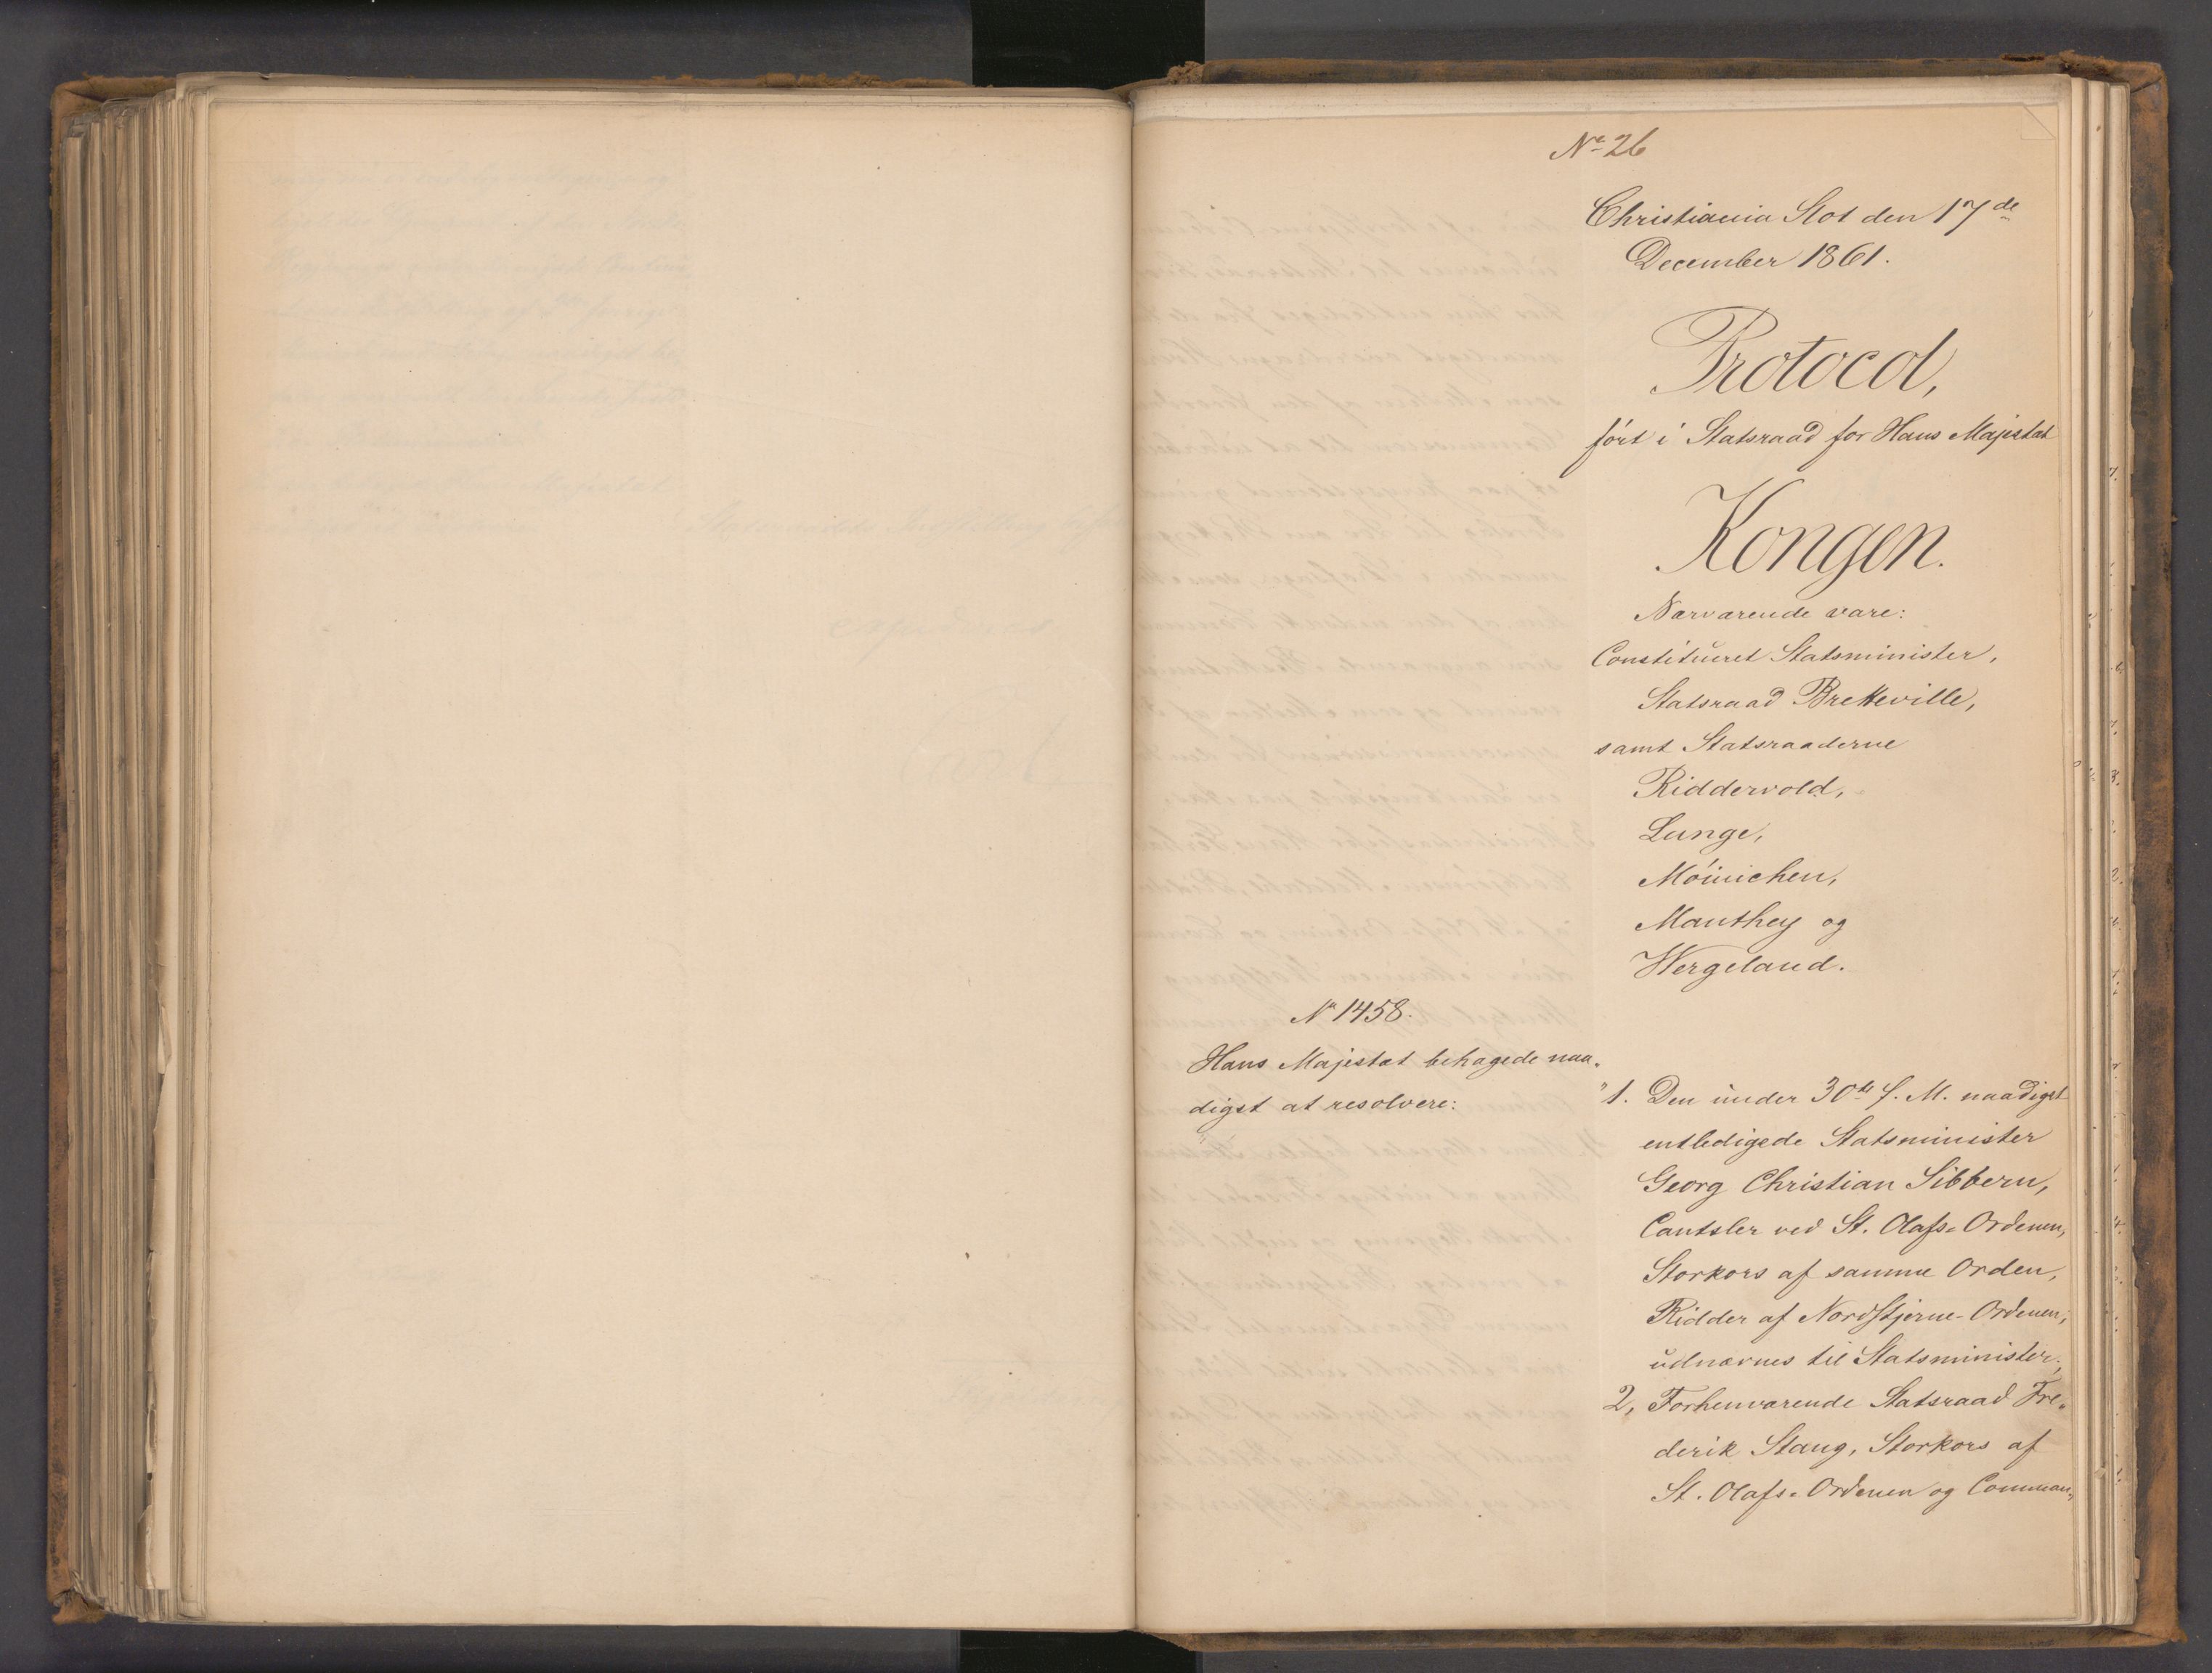 No 26
Christiania Slot den 17de
December 1861.
Protocol,
ført i Statsraad for Hans Majestæt
Kongen.
Nærværende vare:
Constitueret Statsminister,
Statsraad Bretteville,
samt Statsraaderne
Riddervold,
Lange,
Möinichen,
Manthey og
Wergeland.
No 1458.
Hans Majestæt behagede naa-
digst at resolvere:
"1. Den under 30te f. M. naadigst
entledigede Statsminister
Georg Christian Sibbern,
Cantsler ved St. Olafs-Ordenen,
Storkors af samme Orden,
Ridder af Nordstjerne-Ordenen,
udnævnes til Statsminister;
2, Forhenværende Statsraad Fre-
derik Stang, Storkors af
St. Olafs-Ordenen og Comman-